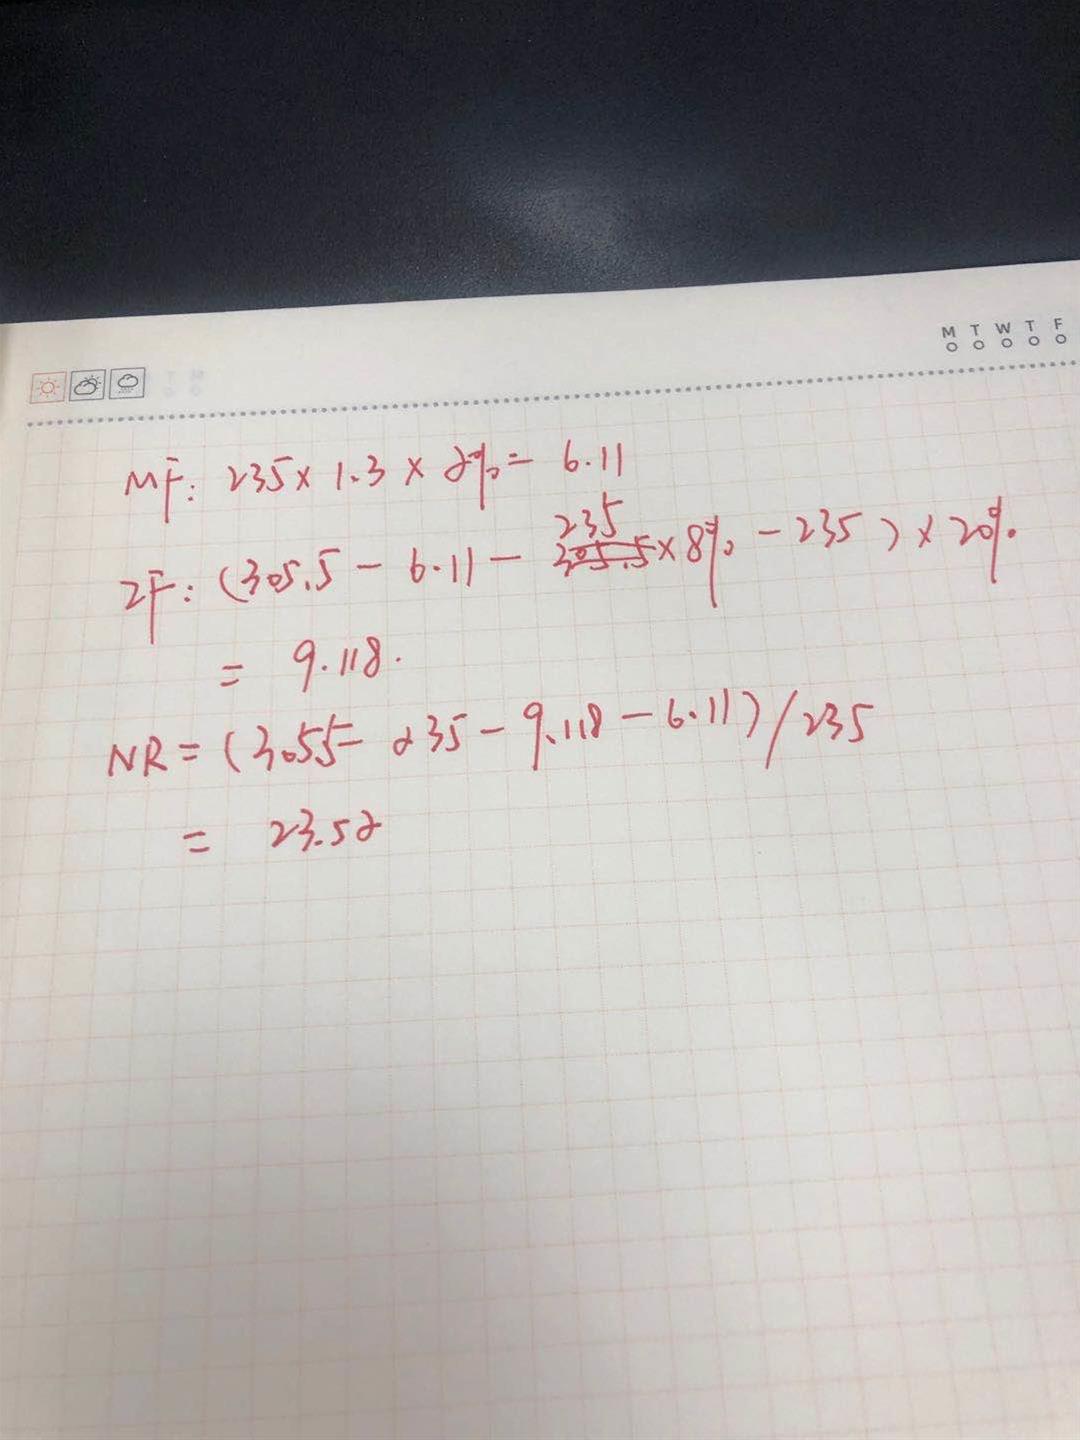 M T W T F
MF: 235 × 1.3 × 2% = 6.11
235
IF: (305.5 - 6.11 - 305.5 × 8% - 235) × 20%
= 9.118.
NR = (305.5 - 235 - 9.118 - 6.11) / 235
= 23.52